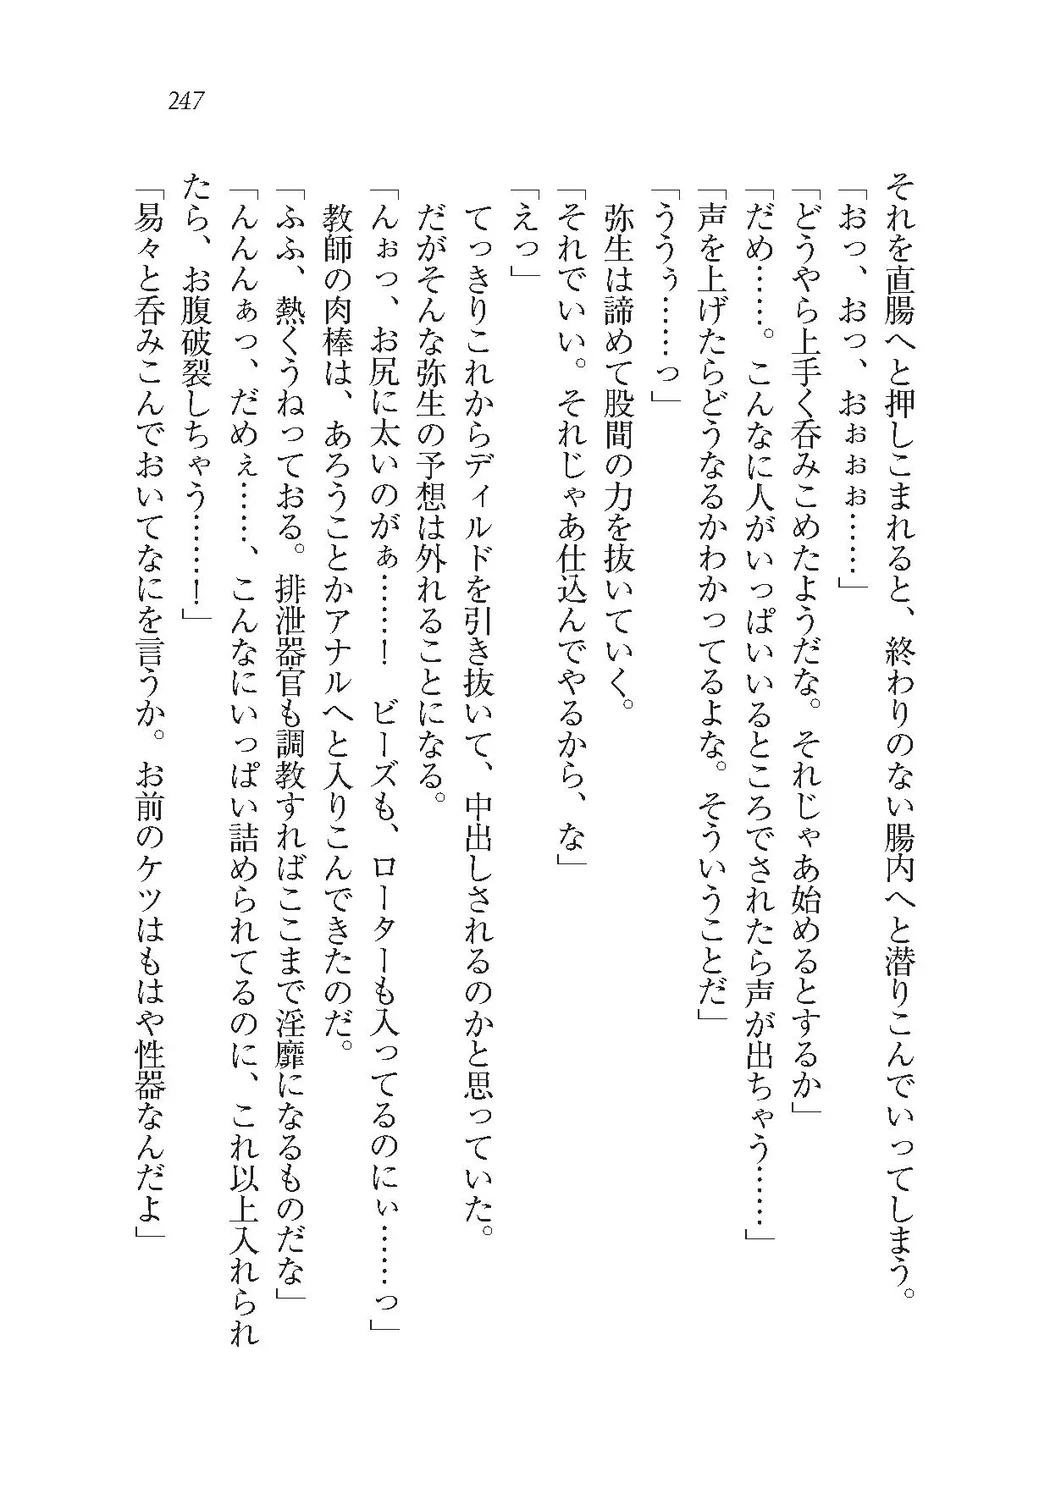 247
それを直腸へと押しこまれると、終わりのない腸内へと潜りこんでいってしまう。
「おっ、おっ、おぉぉぉ……」
「どうやら上手く呑みこめたようだな。それじゃあ始めるとするか」
「だめ……。こんなに人がいっぱいいるところでされたら声が出ちゃう……」
「声を上げたらどうなるかわかってるよな。そういうことだ」
「ううぅ……っ」
弥生は諦めて股間の力を抜いていく。
「それでいい。それじゃあ仕込んでやるから、な」
「えっ」
てっきりこれからディルドを引き抜いて、中出しされるのかと思っていた。
だがそんな弥生の予想は外れることになる。
「んぉっ、お尻に太いのがぁ……！　ビーズも、ローターも入ってるのにぃ……っ」
教師の肉棒は、あろうことかアナルへと入りこんできたのだ。
「ふふ、熱くうねっておる。排泄器官も調教すればここまで淫靡になるものだな」
「んんんぁっ、だめぇ……、こんなにいっぱい詰められてるのに、これ以上入れられ
たら、お腹破裂しちゃう……！」
「易々と呑みこんでおいてなにを言うか。お前のケツはもはや性器なんだよ」